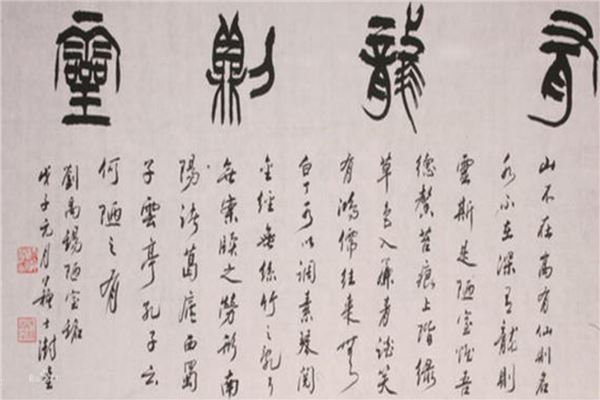 有龍則靈
山不在高有仙則名
水不在深有龍則
靈斯是陋室惟吾
德馨苔痕上階綠
草色入簾青談笑
有鴻儒往來無
白丁可以調素琴閱
金經無絲竹之亂耳
無案牘之勞形南
陽諸葛廬西蜀
子雲亭孔子云
何陋之有
劉禹錫陋室銘
戊子元月蘇士澍書